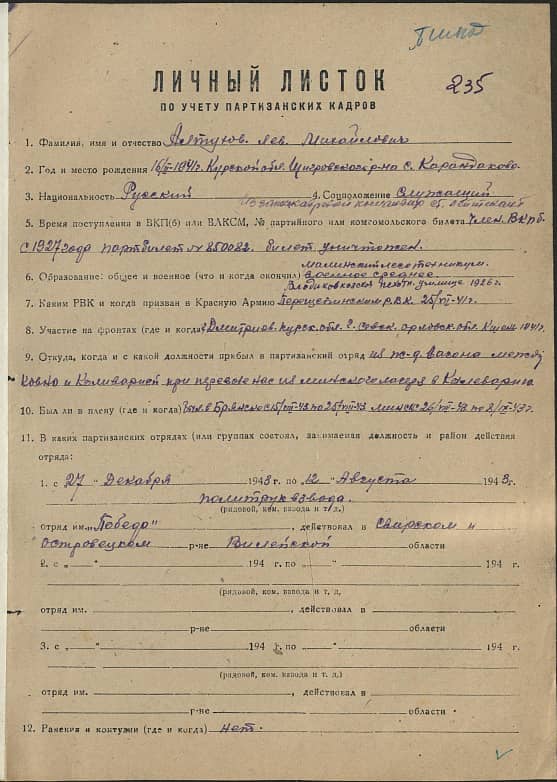 235
ЛИЧНЫЙ ЛИСТОК
ПО УЧЕТУ ПАРТИЗАНСКИХ КАДРОВ
1. Фамилия, имя и отчество Лев Михайлович
2. Год и место рождения Курской обл. Щигровского р-на с.
3. Национальность Русский 4. Соцположение Служащий
5. Время поступления в ВКП(б) или ВЛКСМ, № партийного или комсомольского билета Член ВКПб
с 1927 года партбилет № 850022. билет уничтожен.
6. Образование: общее и военное (что и когда окончил) военное среднее.
училище 1926 г.
7. Каким РВК и когда призван в Красную Армию РВК 25/VII-41 г.
8. Участие на фронтах (где и когда) Курск. обл. г. Севск орловск. обл. 1941 г.
9. Откуда, когда и с какой должности прибыл в партизанский отряд из ж-д. вагона между
Ковно и при перевозке нас из минского в
10. Был ли в плену (где и когда) был в Брянске Минск
11. В каких партизанских отрядах (или группах состоял, занимаемая должность и район действия
отряда:
1. с „27 " Декабря 1943 г. по „12 " Августа 194 г.
политрук взвода.
(рядовой, ком. взвода и т/д.)
отряд им. „Победа" , действовал в Свирском и
островецком р-не Вилейской области
2. с „ " 194 г. по „ " 194 г.
(рядовой, ком. взвода и т. д.
отряд им. , действовал в
р-не области
3. с „ " 194 г. по „ " 194 г.
(рядовой, ком. взвода и т. д.)
отряд им. , действовал в
р-не области
12. Ранения и контузии (где и когда) нет.